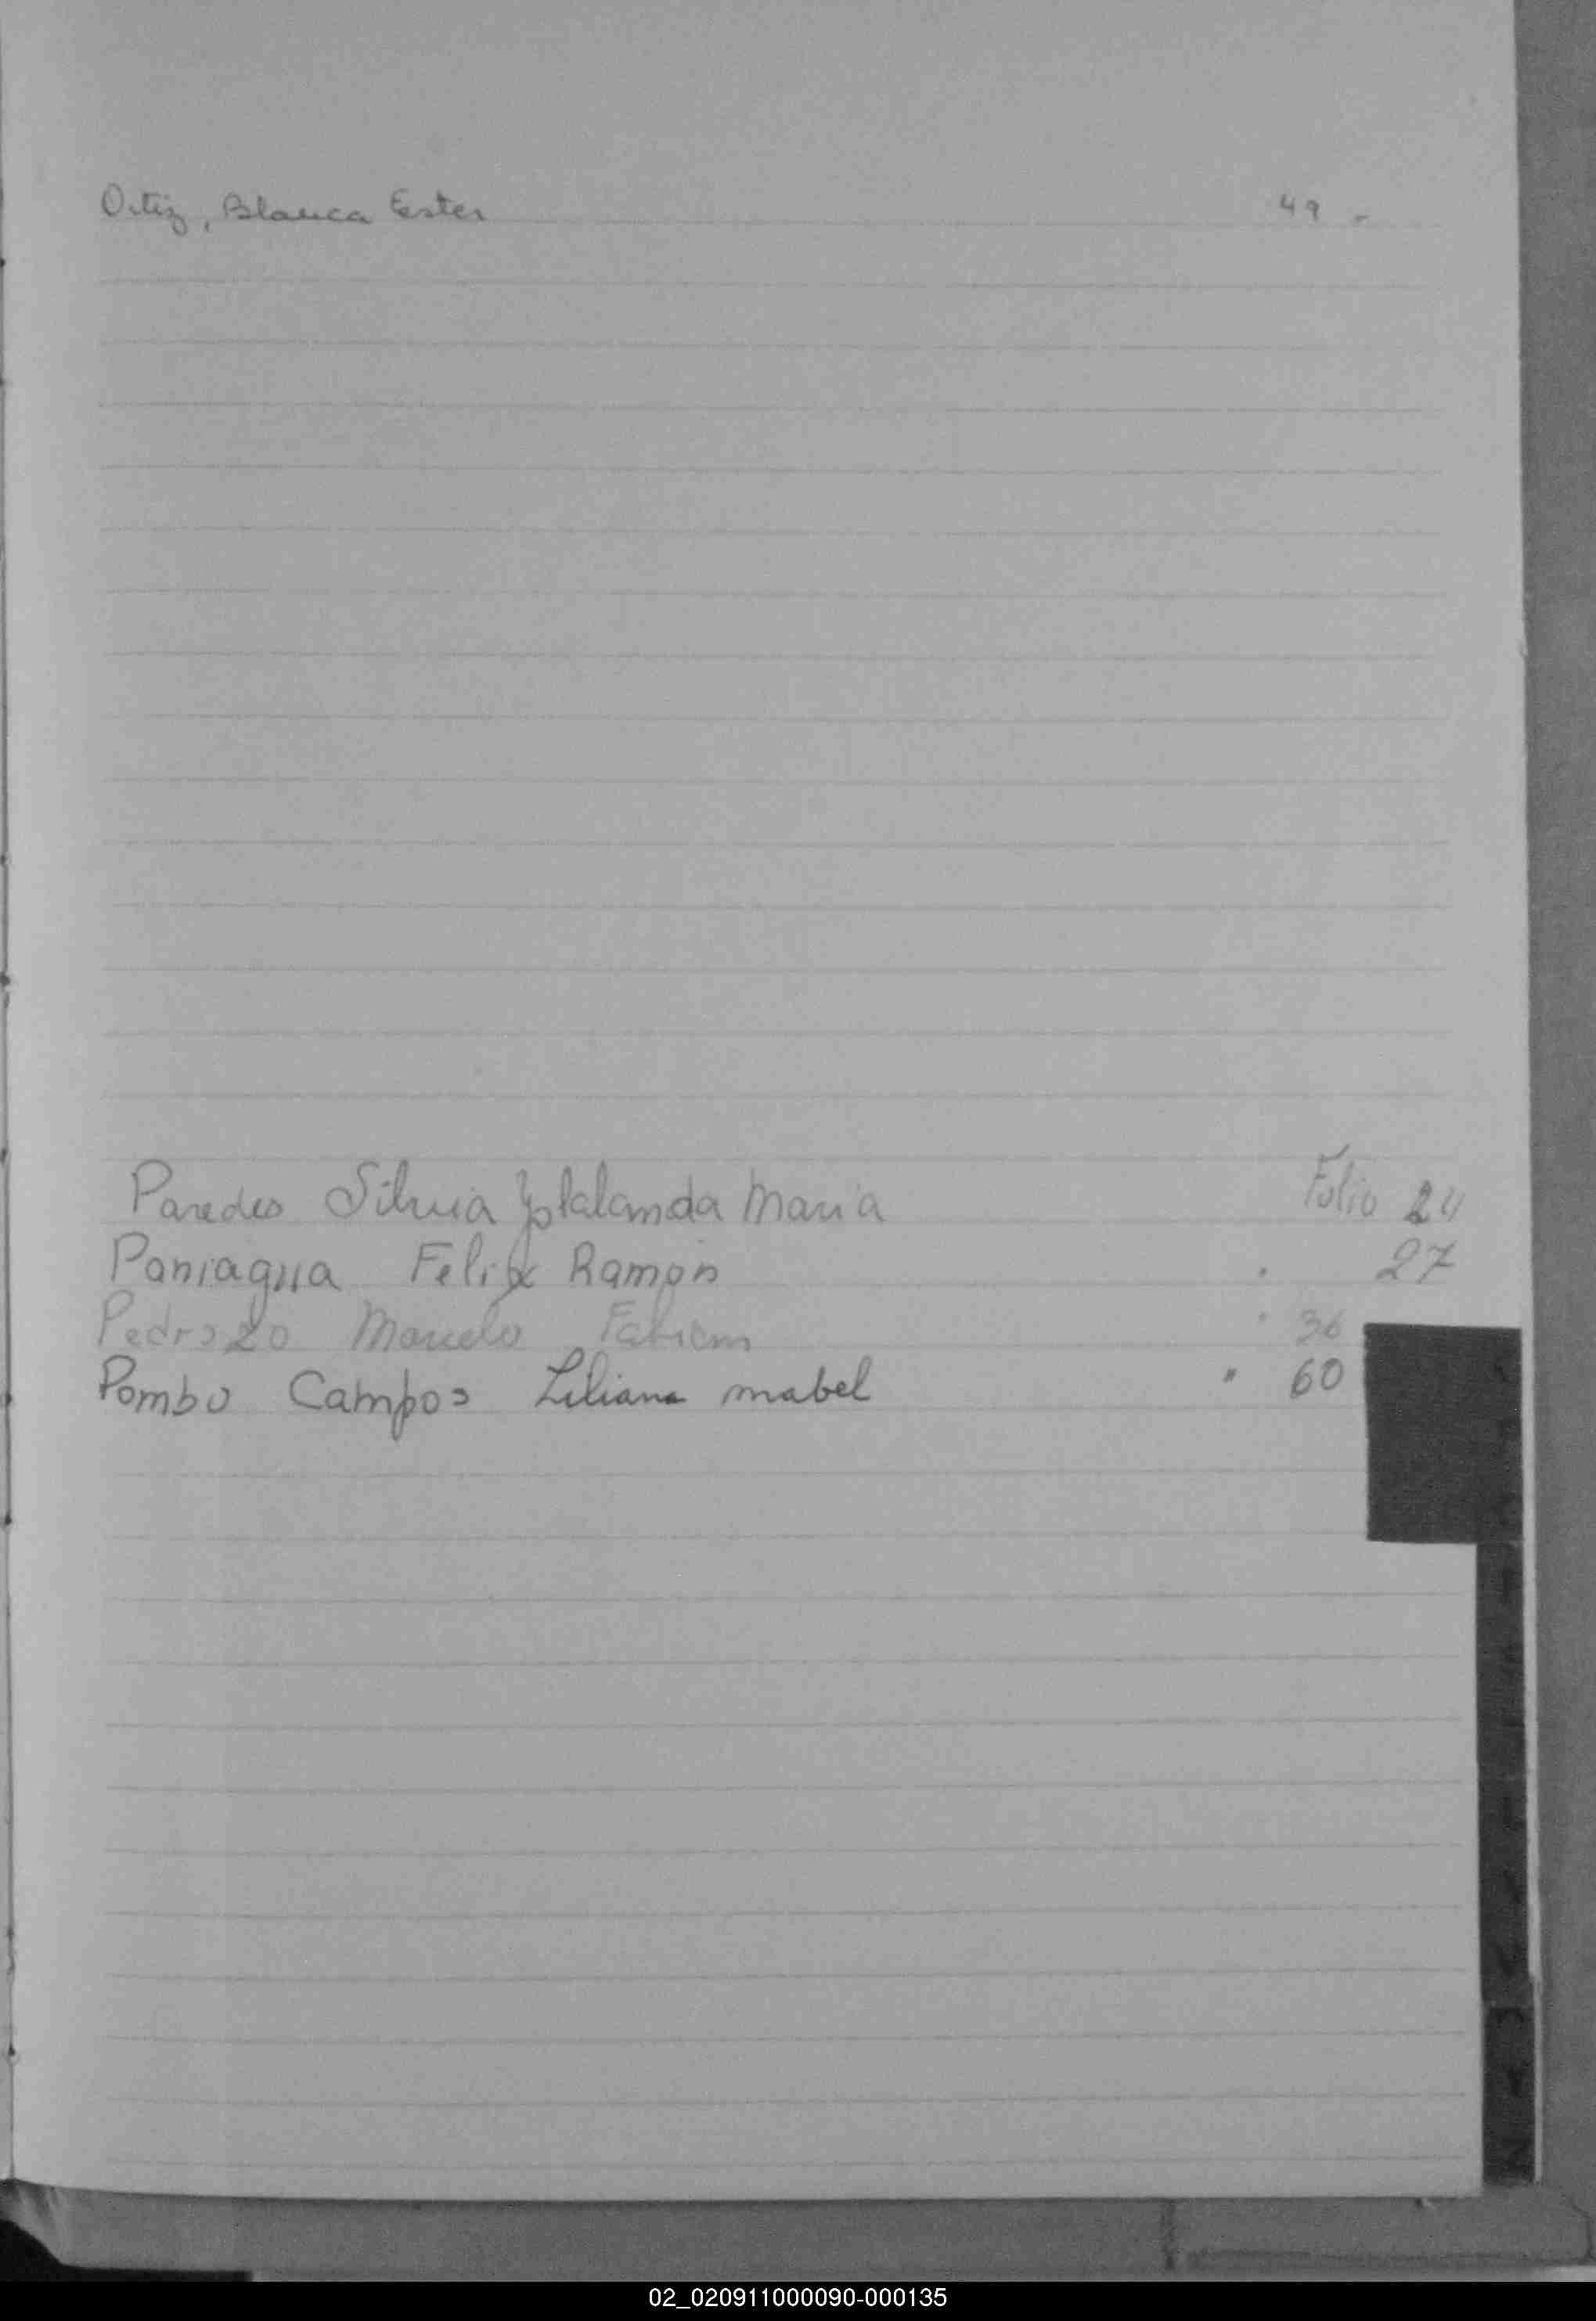 Ortiz, Blanca Ester 49 -
Paredes Silvia Maria Folio 24
Paniagua Felix Ramon . 27
Pedrozo Marcelo Fabian " 36
Pombo Campos Liliana mabel " 60
02_020911000090-000135